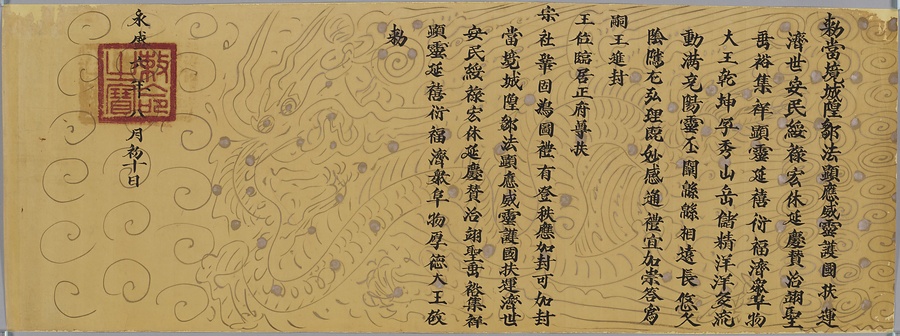 勅當境城隍鄒法顯應威靈護國扶運
濟世安民綏祿宏休延慶贊治翊聖
垂裕集祥顯靈延禧衍福濟衆阜物
大王乾坤孚秀山岳儲精洋洋
動滿充陽靈丕闡緜緜相遠長悠久
陰隲左弘理旣妙感通禮宜加崇答爲
嗣王進封
王位臨居正府尊扶
宗社鞏固爲國禮有登秩應加封可加封
當境城隍鄒法顯應威靈護國扶運濟世
安民綏祿宏休延慶贊治翊聖垂裕集祥
顯靈延禧衍福濟衆阜物厚德大王故
勅
永盛年八月初十日
勅命之寶